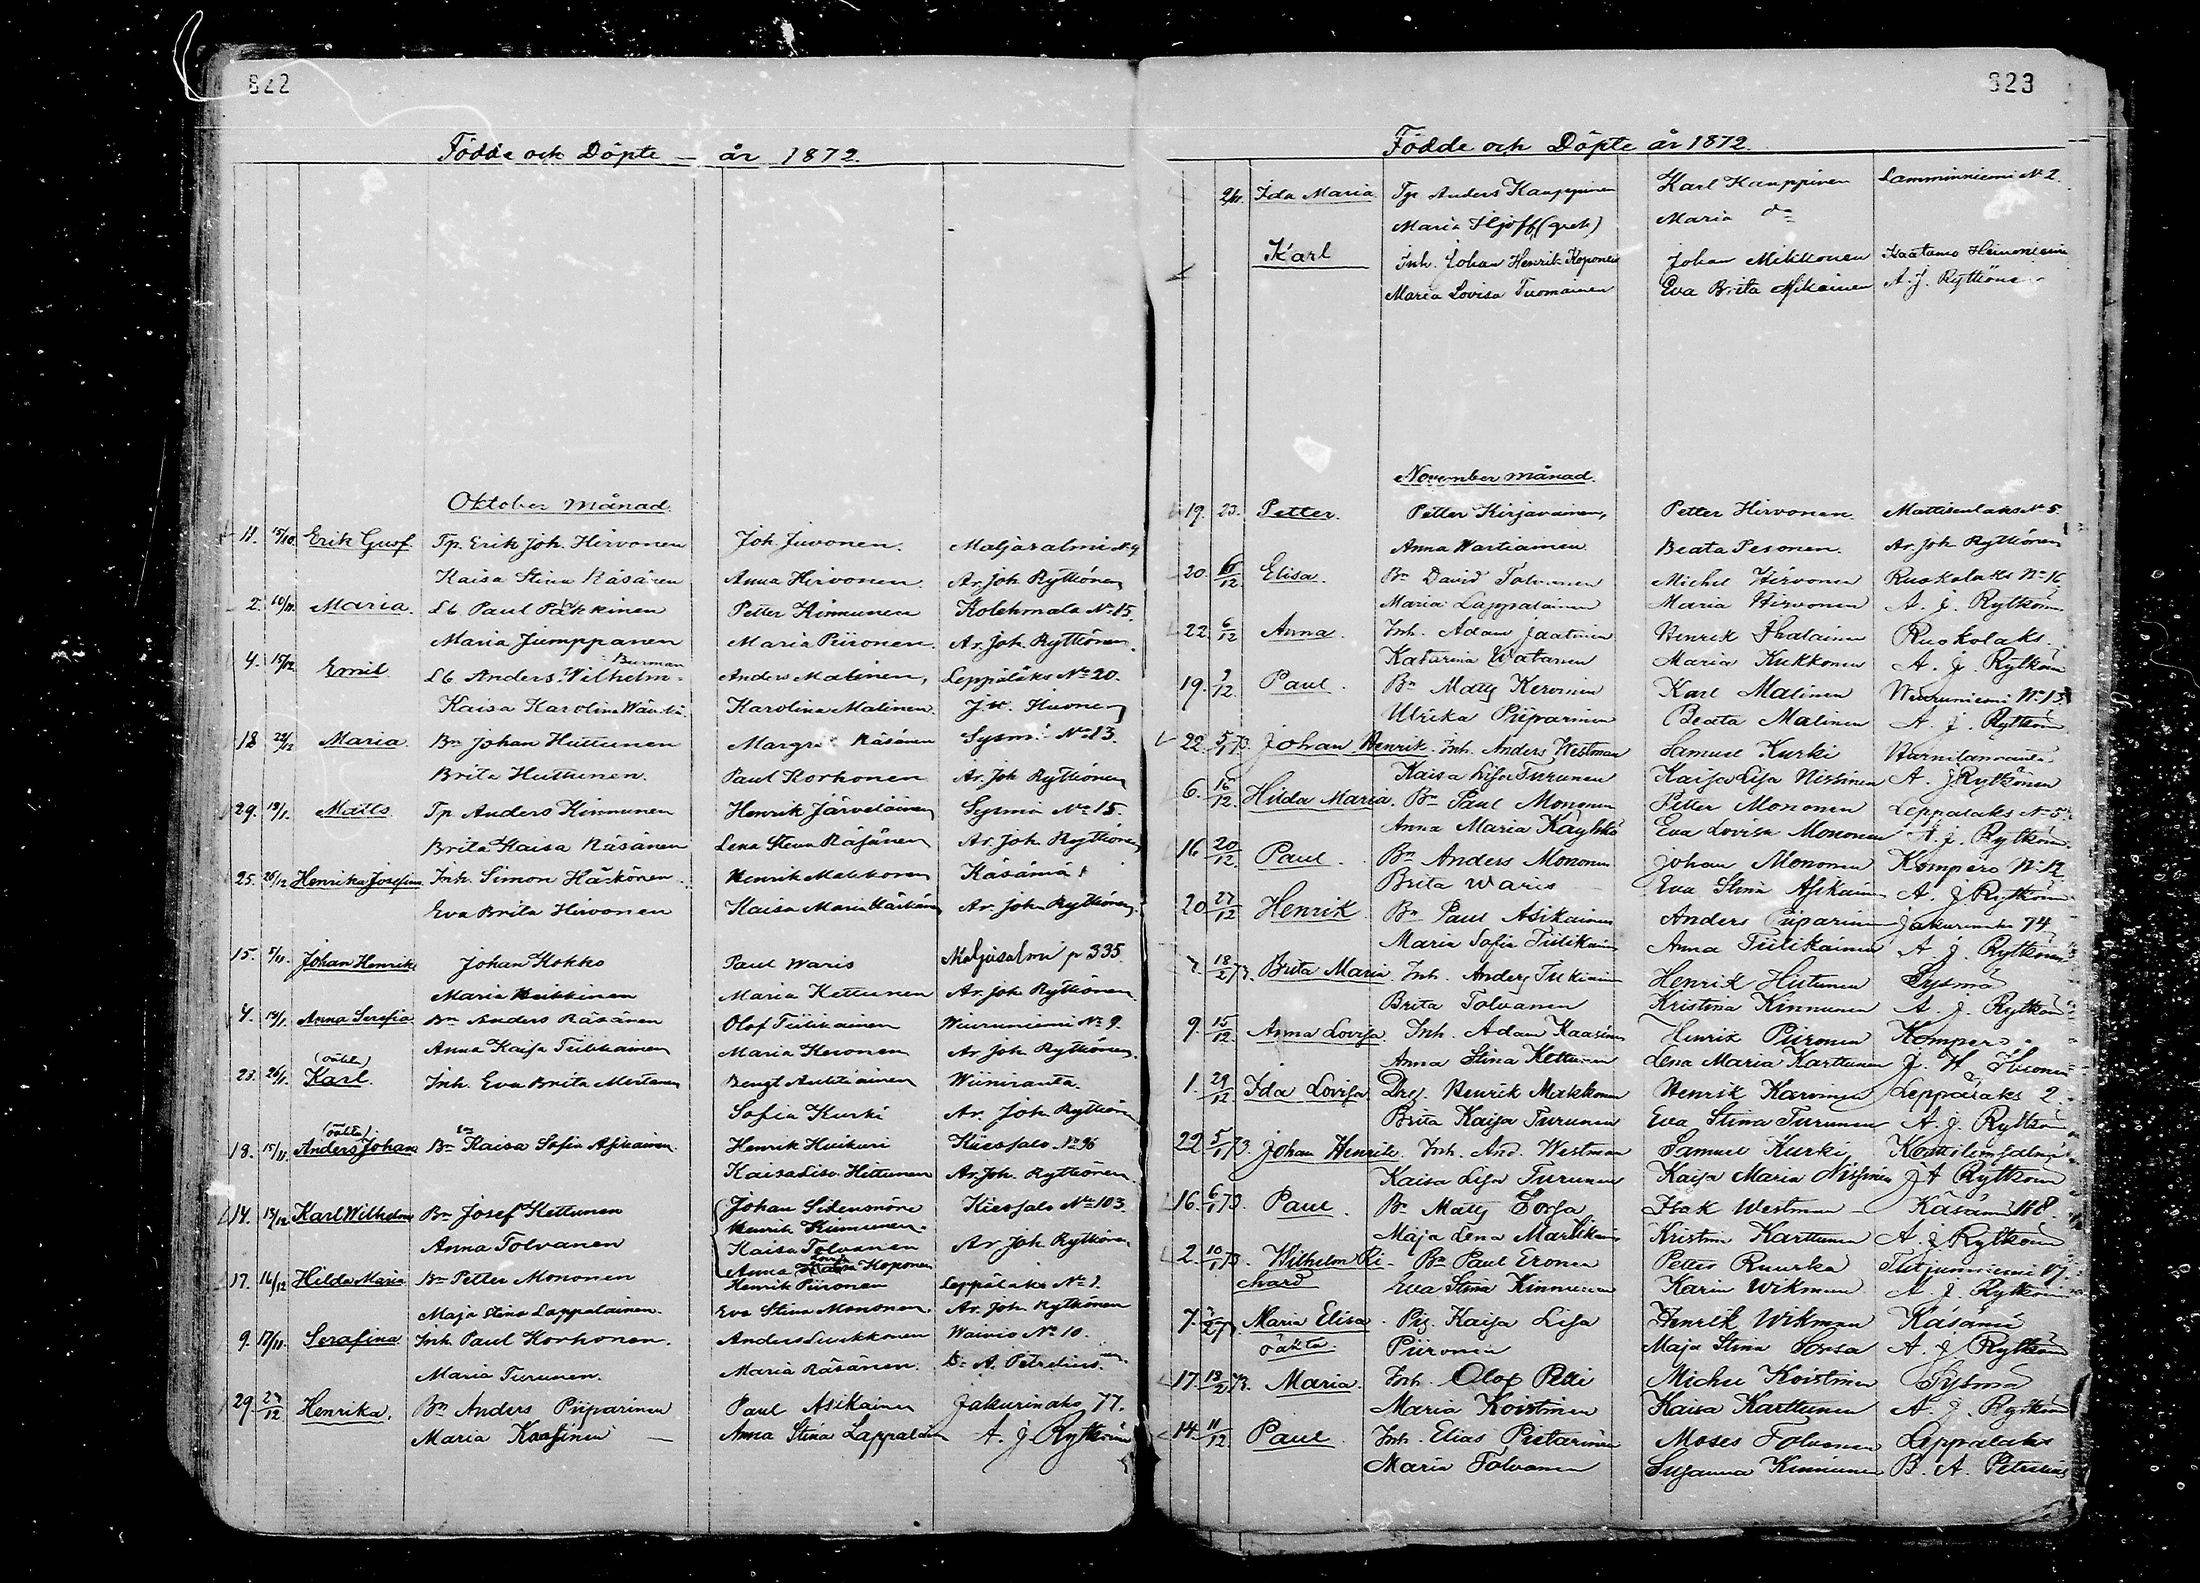 822
Födde och Döpte — år 1872.
Oktober Månad.
11. 15/10. Erik Gust. Tp. Erik Joh. Hirvonen Joh. Juvonen. Maljasalmi № 9
Kaisa Stina Räsänen Anna Hirvonen. Ar. Joh. Rytkönen
2. 10/11. Maria. Lb Paul Pakkinen Petter Kinnunen Kolehmala № 15.
Maria Jumppanen Maria Piironen. Ar. Joh. Rytkönen.
Burman
4. 15/12 Emil Lb Anders Wilhelm Anders Malinen, Leppälaks № 20.
Kaisa Karolina Karolina Malinen. J. H.
18 22/12 Maria. Bn Johan Huttunen Margret Räsänen Sysmä № 13.
Brita Huttunen. Paul Korhonen Ar. Joh. Rytkönen
29. 19/1. Matts Tp Anders Kinnunen Henrik Järveläinen Sysmä № 15.
Brita Kaisa Räsänen Lena Stina Räsänen Ar. Joh. Rytkönen
25. 26/12 Henrika Josefina Inh. Simon Häkkönen Henrik Makkonen Käsämä
Eva Brita Hirvonen Kaisa Maria Ar. Joh. Rytkönen.
15. 5/11. Johan Henrik Johan Kokko Paul Waris Maljasalmi p 335.
Maria Heikkinen Maria Kettunen Ar. Joh. Rytkönen.
4. 19/1. Anna Serafia Bn Anders Räsänen Olof Tiilikainen Wiuruniemi № 9.
Anna Kaisa Tiilikainen Maria Keronen Ar. Joh. Rytkönen.
(oäkta)
23. 26/1. Karl. Inh. Eva Brita Mertanen Bengt Auttiainen Wiiniranta.
Sofia Kurki Ar. Joh. Rytkönen
(oäkta)
18. 15/11. Anders Johan Bn Kaisa Sofia Asikainen. Henrik Huikuri Kiessalo № 96
Kaisa Lisa Hittunen Ar. Joh. Rytkönen.
14. 13/12 Karl Wilhelm Bn Josef Kettunen Johan Sidensnöre Kiessalo № 103
Henrik Kinnunen.
Anna Tolvanen Kaisa Tolvanen Ar. Joh. Rytkönen
Anna Koponen
17. 16/12 Hilda Maria Bn Petter Mononen Henrik Piironen Leppälaks № 2.
Maja Stina Lappalainen. Eva Stina Mononen. Ar. Joh. Rytkönen
9. 17/11. Serafina Inh. Paul Korhonen. Anders Luukkonen Warvis № 10.
Maria Turunen. Maria Räsänen. B. A. Petrelius.
29. 27/12 Henrika. Bn Anders Piiparinen Paul Asikainen Jakurinaho 77.
Maria Kaasinen — Anna Stina Lappalain A. J. Rytkönen
823
Födde och Döpte år 1872.
2/11. Ida Maria Tp Anders Kauppinen Karl Kauppinen Lamminniemi № 2
Maria Iljoff (grek) Maria do
Karl Inh. Johan Henrik Koponen Johan Mikkonen Kaatamo Heinoniemi
Maria Lovisa Tuomainen Eva Brita Asikainen A. J. Rytkönen
November månad.
19. 23. Petter. Petter Kirjavainen, Petter Hirvonen. Mattisenlaks № 5
Anna Wartiainen Beata Pesonen. Ar. Joh. Rytkönen
20. 6/12 Elisa. Bn David Tolvanen Michel Hirvonen Ruokolaks № 16
Maria Lappalainen Maria Hirvonen A. J. Rytkönen
22. 6/12 Anna. Inh. Adam Jaatinen Henrik Ihalainen Ruokolaks.
Katarina Watanen Maria Kukkonen A. J. Rytkönen
19. 9/12. Paul. Bn Matts Kervinen Karl Malinen Wiuruniemi № 13.
Ulrika Piiparinen Beata Malinen A. J. Rytkönen
22. 5/1 73. Johan Henrik. Inh. Anders Westman Samuel Kurki
Kaisa Lisa Turunen Kaisa Lisa Nissinen A. J. Rytkönen
6. 16/12 Hilda Maria. Bn Paul Mononen Petter Mononen Leppälaks № 5.
Anna Maria Käyhkö Eva Lovisa Mononen A. J. Rytkönen
16 20/12. Paul. Bn Anders Mononen Johan Mononen Kompero № 12
Brita Waris Eva Stina Asikain A. J. Rytkönen
20 27/12 Henrik. Bn Paul Asikainen Anders Piiparinen Jakurinaho 74
Maria Sofia Tiilikain Anna Tiilikainen A. J. Rytkönen
7. 18/2 73. Brita Maria Inh. Anders Tukiain Henrik Hutunen Sysmä
Brita Tolvanen Kristina Kinnunen A. J. Rytkönen
9. 15/12. Anna Lovisa Inh. Adam Kaasinen Henrik Piironen Kompero
Anna Stina Kettunen Lena Maria Karttunen J. H.
1. 29/12. Ida Lovisa Drg. Henrik Makkonen Henrik Karvinen Leppälaks 2
Brita Kaisa Turunen Eva Stina Turunen A. J. Rytkön
22 5/1 73. Johan Henrik. Inh. And. Westman Samuel Kurki
Kaisa Lisa Turunen Kaisa Maria Nissinen J A Rytkönen
16. 6/1 73. Paul. Bn Matts Sorsa Isak Westman Käsämä 18.
Maja Lena Martikain Kristin Karttunen A. J. Rytkönen
2. 10/1 73. Wilhelm Ri- Bn Paul Eronen Petter Ruuska Tutjunniemi 17.
chard Eva Stina Kinnunen Karin Wikman A. J. Rytkönen
7. 2/2 73 Maria Elisa Pig. Kaisa Lisa Henrik Wikman Käsämä
oäkta. Piironen Maja Stina Sorsa A. J. Rytkönen
17 18/2 73. Maria. Inh. Olof Petri Michel Koistinen Sysmä
Maria Koistinen Kaisa Karttunen A. J. Rytkönen
14. 11/12 Paul. Inh. Elias Pietarinen Moses Tolvanen Leppälaks
Maria Tolvanen Susanna Kinnunen B. A. Petrelius